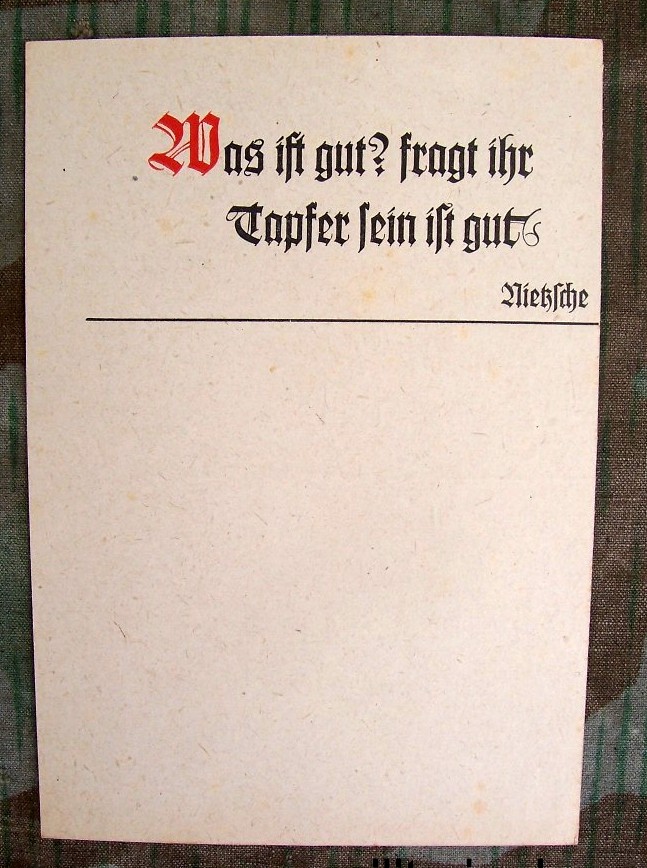 Was ist gut? fragt ihr
Tapfer sein ist gut
Nietzsche